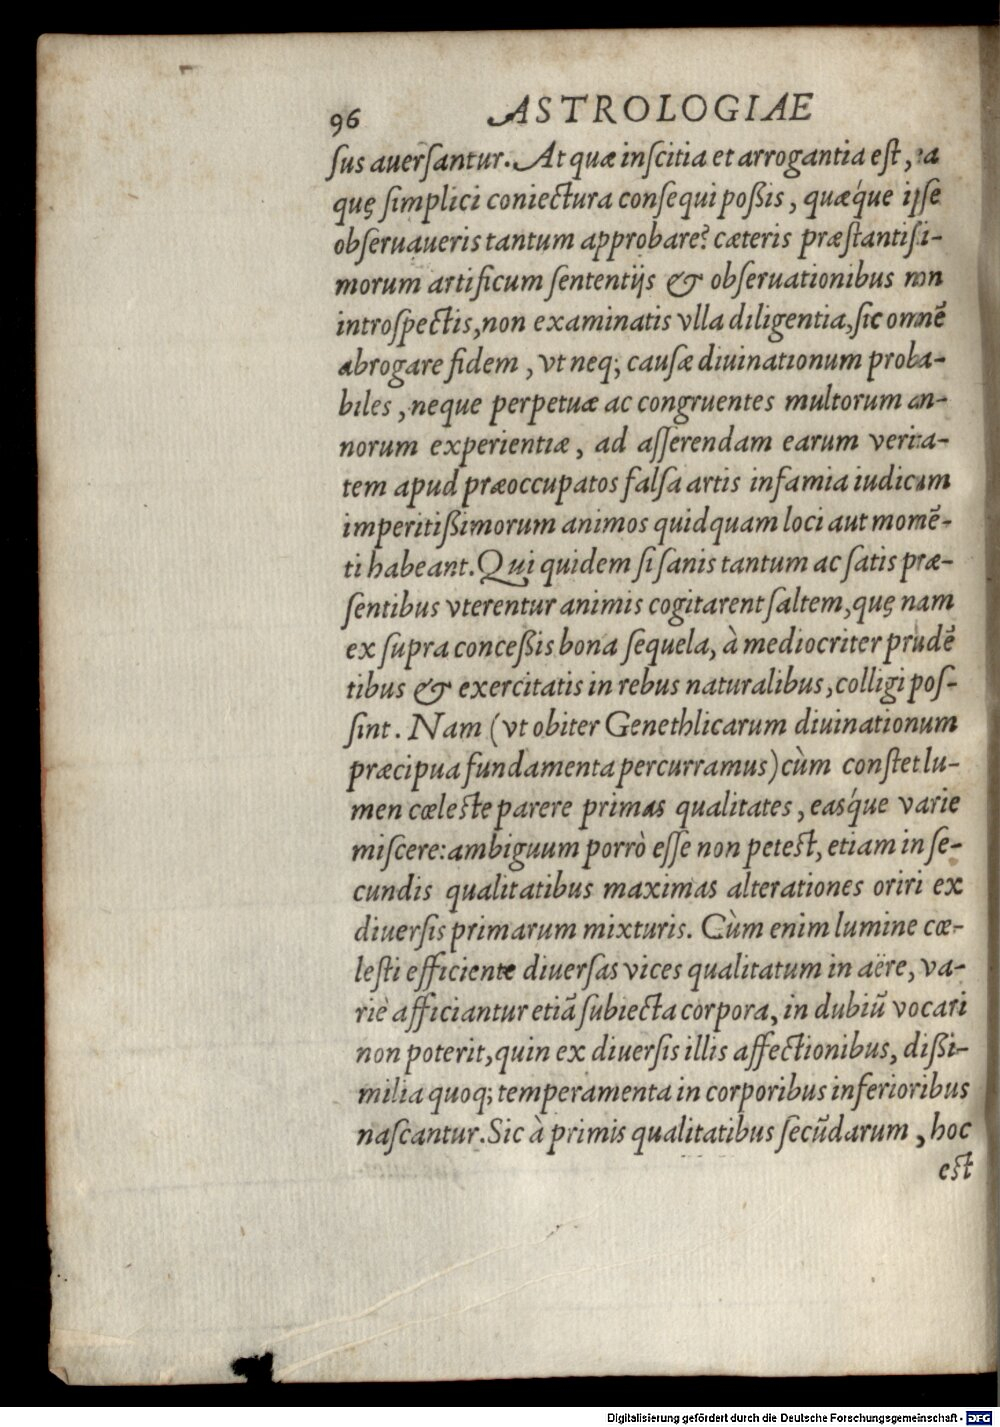 96 ASTROLOGIAE
ſus auerſantur. At quæ inſcitia et arrogantia eſt, ea
quę ſimplici coniectura conſequi poßis, quæq́ue ipſe
obſeruaueris tantum approbare? cæteris præſtantiſsi-
morum artificum ſententijs & obſeruationibus non
introſpectis, non examinatis vlla diligentia, ſic omnē
abrogare fidem, vt neq; cauſæ diuinationum proba-
biles, neque perpetuæ ac congruentes multorum an-
norum experientiæ, ad aſſerendam earum verita-
tem apud præoccupatos falſa artis infamia iudicum
imperitißimorum animos quidquam loci aut momē-
ti habeant. Qui quidem ſi ſanis tantum ac ſatis præ-
ſentibus vterentur animis cogitarent ſaltem, quę nam
ex ſupra conceßis bona ſequela, à mediocriter prudē
tibus & exercitatis in rebus naturalibus, colligi poſ-
ſint. Nam (vt obiter Genethlicarum diuinationum
præcipua fundamenta percurramus) cùm conſtet lu-
men cœleſte parere primas qualitates, easq́ue varie
miſcere: ambiguum porrò eſſe non peteſt, etiam in ſe-
cundis qualitatibus maximas alterationes oriri ex
diuerſis primarum mixturis. Cùm enim lumine cœ-
leſti efficiente diuerſas vices qualitatum in aëre, va-
riè afficiantur etiā ſubiecta corpora, in dubiũ vocari
non poterit, quin ex diuerſis illis affectionibus, dißi-
milia quoq; temperamenta in corporibus inferioribus
naſcantur. Sic à primis qualitatibus ſecũdarum, hoc
eſt
Digitalisierung gefördert durch die Deutsche Forschungsgemeinschaft - DFG